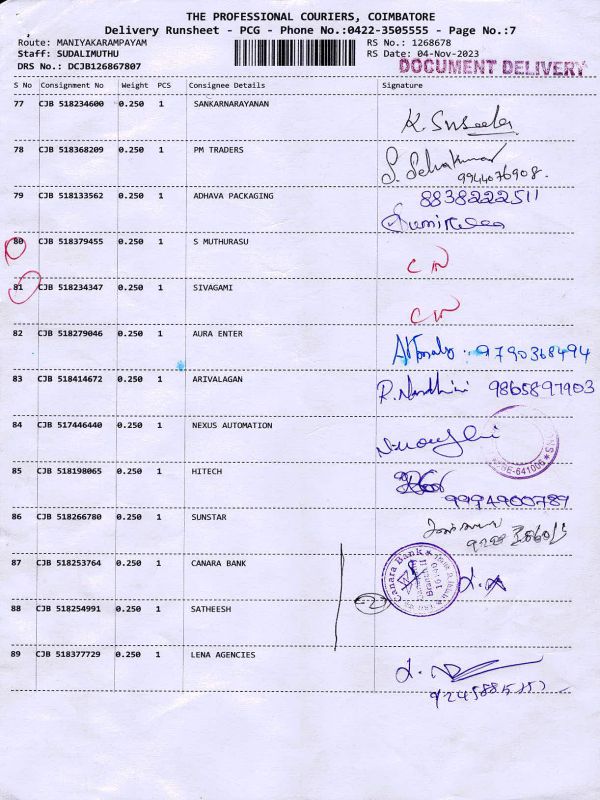 THE PROFESSIONAL COURIERS, COIMBATORE
Delivery Runsheet - PCG - Phone No.:0422-3505555 - Page No.:7
Route: MANIYAKARAMPAYAM RS No.: 1268678
Staff: SUDALIMUTHU RS Date: 04-Nov-2023
DRS No.: DCJB126867807 DOCUMENT DELIVERY
S No Consignment No Weight PCS Consignee Details Signature
77 CJB 518234600 0.250 1 SANKARNARAYANAN
K. Suseela
78 CJB 518368209 0.250 1 PM TRADERS
9944076908.
79 CJB 518133562 0.250 1 ADHAVA PACKAGING 8838222511
80 CJB 518379455 0.250 1 S MUTHURASU
81 CJB 518234347 0.250 1 SIVAGAMI
82 CJB 518279046 0.250 1 AURA ENTER
9790368494
83 CJB 518414672 0.250 1 ARIVALAGAN
R. Nandhini 9865897903
84 CJB 517446440 0.250 1 NEXUS AUTOMATION
CBE-641006
85 CJB 518198065 0.250 1 HITECH
9994900789
86 CJB 518266780 0.250 1 SUNSTAR
87 CJB 518253764 0.250 1 CANARA BANK
Canara Bank
88 CJB 518254991 0.250 1 SATHEESH
2
89 CJB 518377729 0.250 1 LENA AGENCIES